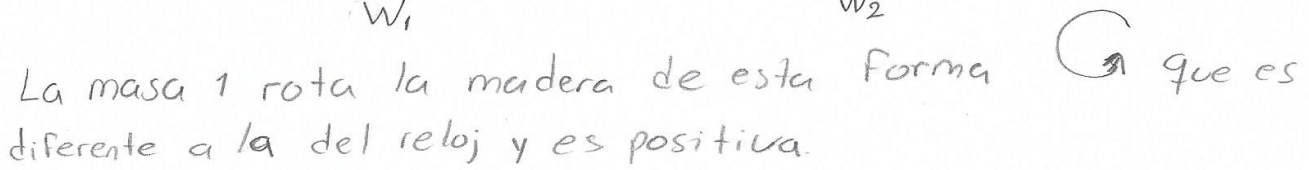 W₁ W₂
La masa 1 rota la madera de esta forma que es
diferente a la del reloj y es positiva.